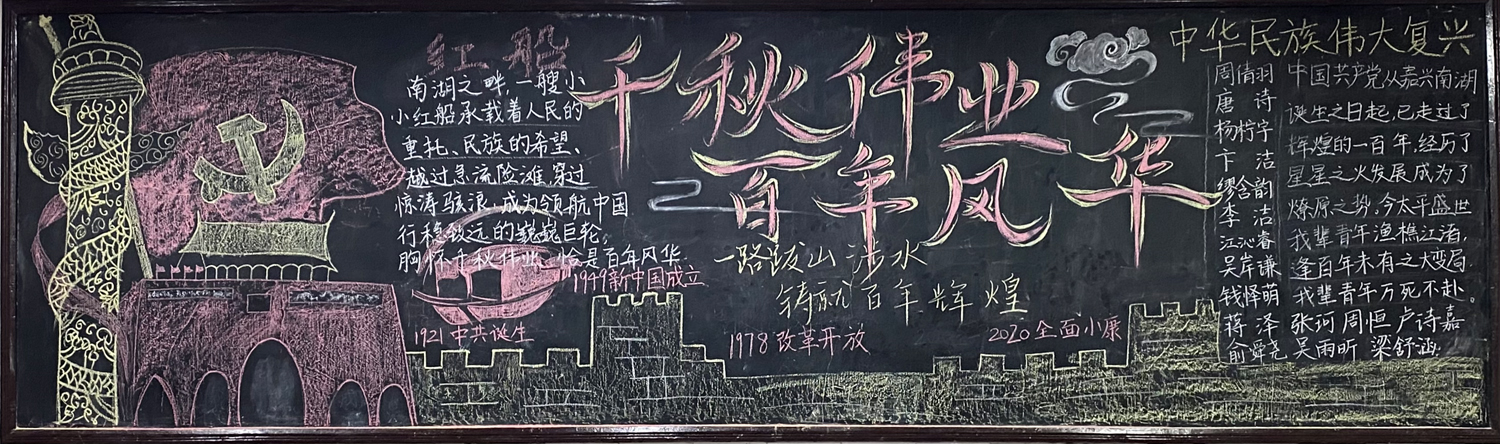 红船
南湖之畔,一艘小
小红船承载着人民的
重托、民族的希望、
越过急流险滩,穿过
惊涛骇浪,成为领航中国
行稳致远的巍巍巨轮。
胸怀千秋伟业,恰是百年风华.
1949新中国成立
1921中共诞生
千秋伟业
百年风华
一路跋山涉水
铸就百年辉煌
1978改革开放
2020全面小康
中华民族伟大复兴
周倩羽
唐诗
杨柠宇
卞洁
缪含韵
李洁
江沁睿
吴岸谦
钱怿萌
蒋泽 张珂 周恒 卢诗嘉
俞舜尧 吴雨昕 梁舒涵
中国共产党从嘉兴南湖
诞生之日起,已走过了
辉煌的一百年,经历了
星星之火发展成为了
燎原之势,今太平盛世
我辈青年渔樵江渚,
逢百年未有之大变局
我辈青年万死不赴。